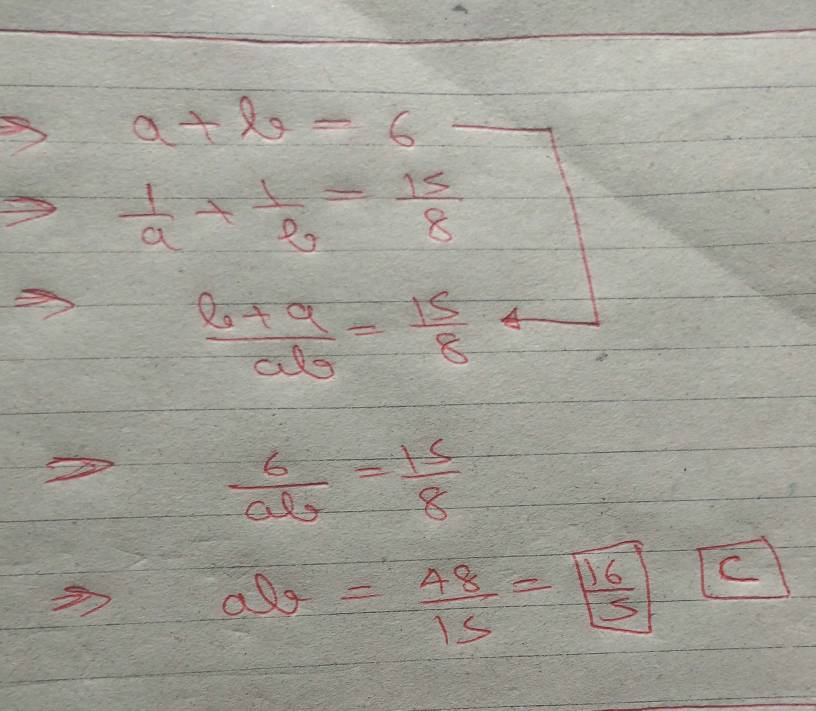 ⇒ a + b = 6
⇒ 1/a + 1/b = 15/8
⇒ b + a/ab = 15/8
⇒ 6/ab = 15/8
⇒ ab = 48/15 = 16/5 C